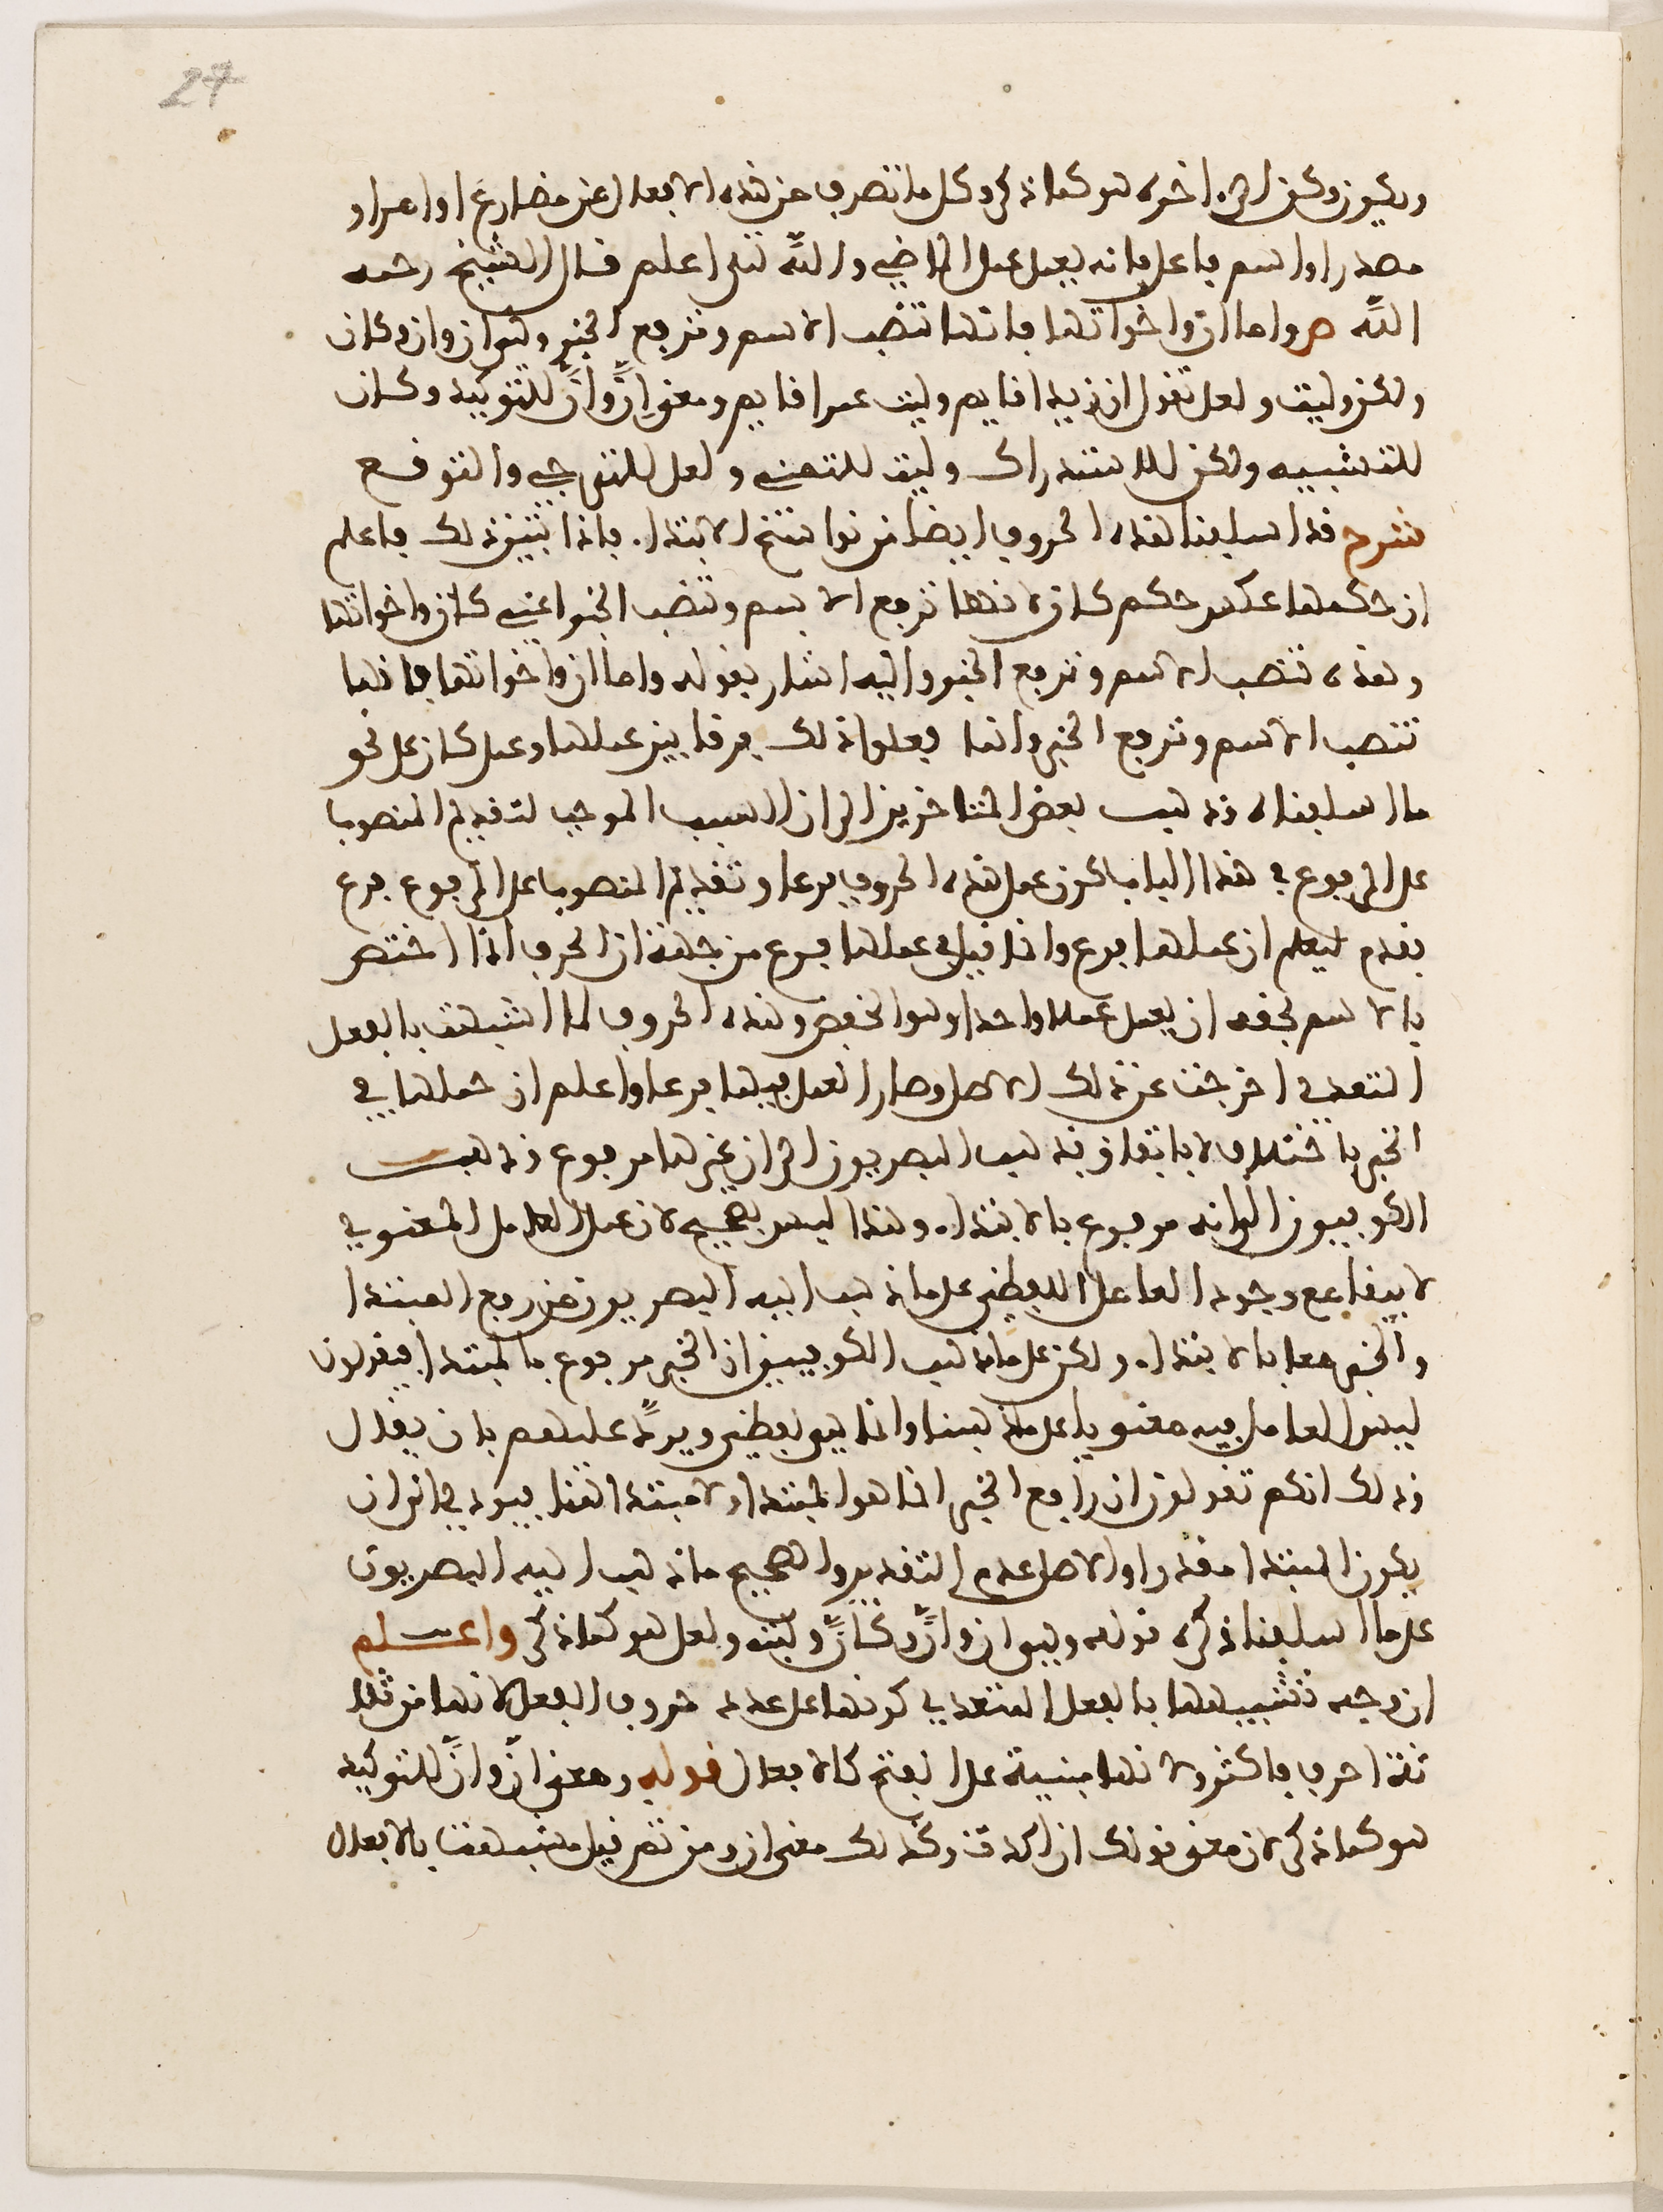 27
ويكون وكن الى اخره هو كما ذكر وكل ما تصرف من هذه الافعال من مضارع او امر او
مصدر او اسم فاعل فانه يعمل عمل الماضي والله تعلى اعلم قال الشيخ رحمه
الله ص واما ان واخواتها فانها تنصب الاسم وترفع الخبر وهي ان وان وكان
ولكن وليت ولعل تقول ان زيدا قايم وليت عمرا قايم ومعنى إنّ وأنّ للتوكيد وكان
للتشبيه ولكن للاستدراك وليت للتمني ولعل للترجي والتوقع
شرح قد اسلفنا هذه الحروف ايضا من نواسخ الابتداء فاذا تبين ذلك فاعلم
ان حكمها عكس حكم كان لانها ترفع الاسم وتنصب الخبر اعني كان واخواتها
وهذه تنصب الاسم وترفع الخبر واليه اشار بقوله واما ان واخواتها فانها
تنصب الاسم وترفع الخبر وانما فعلوا ذلك فرقا بين عملها وعمل كان على نحو
ما اسلفناه وذهب بعض المتاخرين الى ان السبب الموجب لتقديم المنصوب
على المرفوع في هذا الباب كون عمل هذه الحروف فرعا وتقديم المنصوب على المرفوع فرع
فقدم ليعلم ان عملها فرع وانما قيل في عملها فرع من جهة ان الحرف اذا اختص
بالاسم فحقه ان يعمل عملا واحدا وهو الخفض وهذه الحروف لما اشبهت بالفعل
المتعدي اخرجت عن ذلك الاصل وصار العمل فيها فرعا واعلم ان عملها في
الخبر باختلاف لا باتفاق فذهب البصريون الى ان خبرها مرفوع وذهب
الكوفيون الى انه مرفوع بالابتداء وهذا ليس بصحيح لان عمل العامل المعنوي
لا يبقا مع وجود العامل اللفظي على ما ذهب اليه البصريون من رفع المبتدا
والخبر معا بالابتداء ولكن على ما ذهب الكوفيين ان الخبر مرفوع بالمبتدا فيقولون
ليس العامل فيه معنويا على مذهبنا وانما هو لفظي ويردّ عليهم بان يقال
وذلك انكم تقولون ان رافع الخبر انما هو المبتدا ولا مبتدا هنا فيودي الى ان
يكون المبتدا مقدرا والاصل عدم التقدير والصحيح ما ذهب اليه البصريون
على ما اسلفنا ذكره قوله وهي ان وأنّ وكأنّ وليت ولعل هو كما ذكر واعلم
ان وجه تشبيهها بالفعل المتعدي كونها على عدد حروف الفعل لانها من ثلا
ثة احرف فاكثر ولانها مبنية على الفتح كالافعال قوله ومعنى إنّ وأنّ للتوكيد
هو كما ذكر لان معنى قولك ان اكدت وكذلك معنى ان ومن ثم قيل مشبهة بالافعال